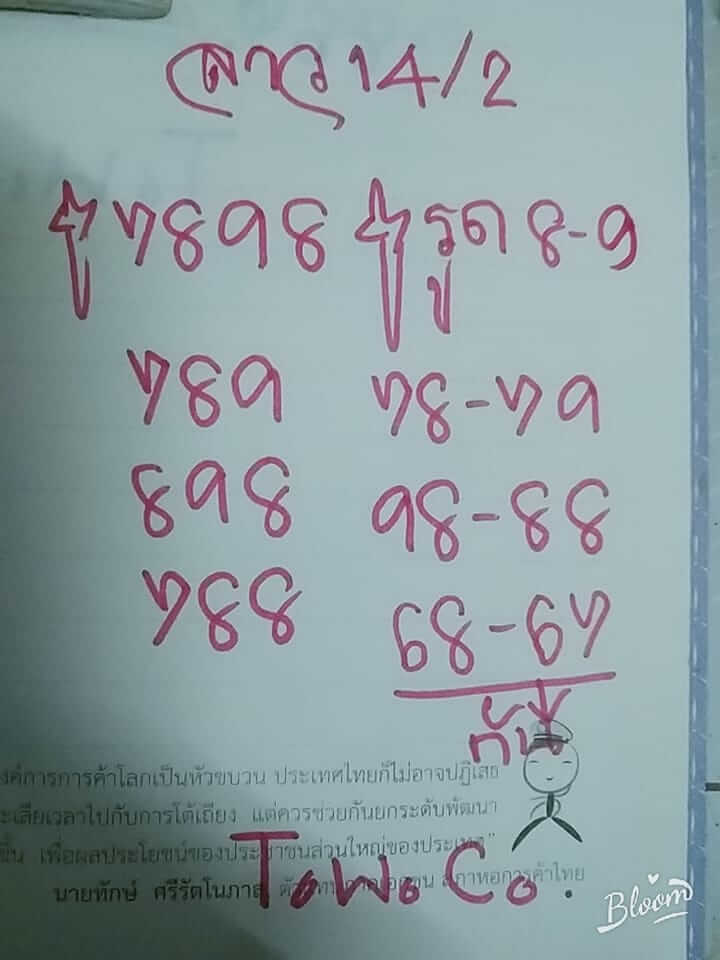 ลาว 14/2
7898 รูด 8-9
789 78-79
898 98-88
788 68-67
กัน
งค์การการค้าโลกเป็นหัวขบวน ประเทศไทยก็ไม่อาจปฏิเสธ
ะเสียเวลาไปกับการโต้เถียง แต่ควรช่วยกันยกระดับพัฒนา
ขึ้น เพื่อผลประโยชน์ของประชาชนส่วนใหญ่ของประเทศ"
นายทักษ์ ศรีรัตโนภาส, สภาหอการค้าไทย
ToWo Co.
Bloom